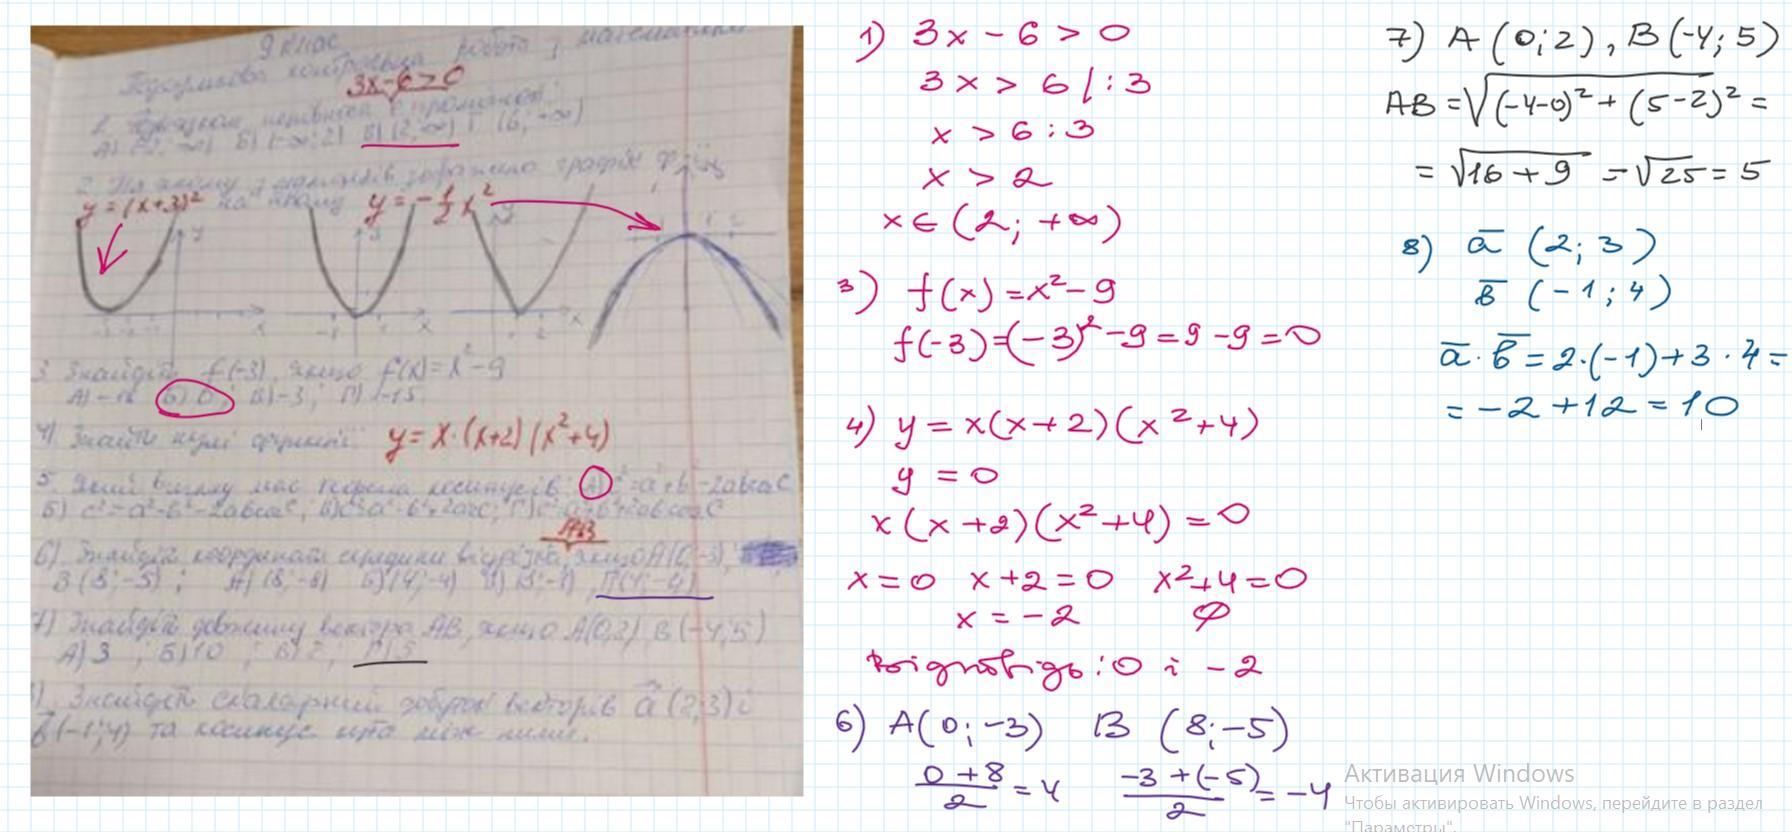 9 клас
Підсумкова контрольна робота з математики
3x-6>0
1. Розв'язком нерівності є проміжок:
Б) (-∞; 2) В) (2; ∞) Г (6; -∞)
2. На якому з малюнків зображено графік
y=(x+3)² y=-1/2 x²
3. Знайдіть f(-3), якщо f(x)=x²-9
Б) 0; В) -3; Г) -15
4). Знайти нулі функції: y=x·(x+2)(x²+4)
5. Який вигляд має теорема косинусів: А) c²=a²+b²-2abcosC
6). Знайдіть координати середини відрізка, якщо A(0;-3),
B(8;-5); А) (8;-8) Б) (4;-4)
7) Знайдіть довжину вектора AB, якщо A(0,2) B(-4;5)
А) 3; Б) 10; В) 2; Г) 5
8). Знайдіть скалярний добуток векторів a (2;3) і
b(-1;4) та косинус кута між ними.
1) 3x - 6 > 0
3x > 6 /:3
x > 6 : 3
x > 2
x ∈ (2; +∞)
3) f(x) = x² - 9
f(-3) = (-3)² - 9 = 9 - 9 = 0
4) y = x(x+2)(x²+4)
y = 0
x(x+2)(x²+4) = 0
x = 0 x+2 = 0 x²+4 = 0
x = -2 ∅
Відповідь: 0 і -2
6) A(0; -3) B (8; -5)
(0+8)/2 = 4 (-3+(-5))/2 = -4
7) A (0; 2), B (-4; 5)
AB = √((-4-0)² + (5-2)²) =
= √(16+9) = √25 = 5
8) a (2; 3)
в (-1; 4)
a · в = 2·(-1)+3·4 =
= -2+12 = 10
Активация Windows
Чтобы активировать Windows, перейдите в раздел
"Параметры".